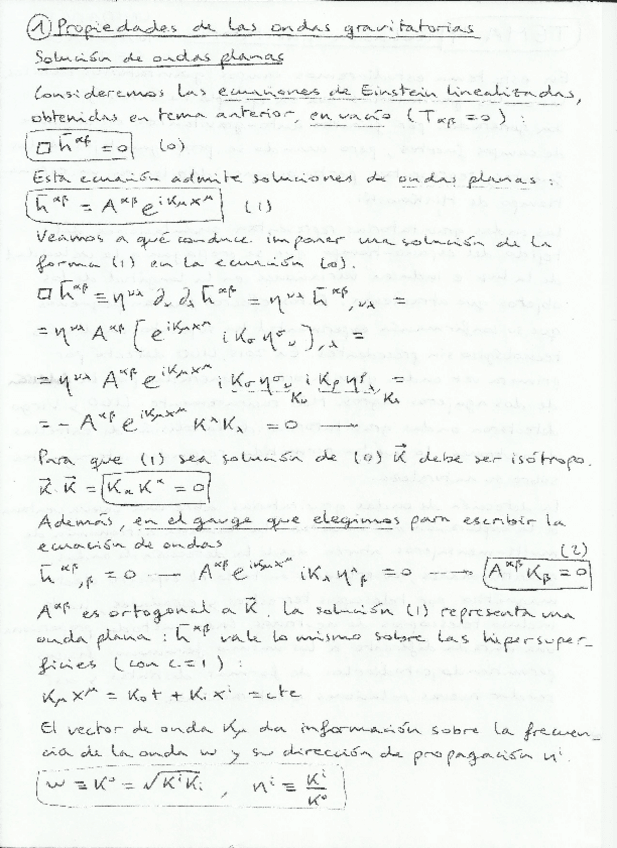 ① Propiedades de las ondas gravitatorias
Solución de ondas planas
Consideremos las ecuaciones de Einstein linealizadas,
obtenidas en tema anterior, en vacío (Tαβ = 0) :
□ h̄^αβ = 0 (0)
Esta ecuación admite soluciones de ondas planas :
h̄^αβ = A^αβ e^{iKμx^μ} (1)
Veamos a qué conduce imponer una solución de la
forma (1) en la ecuación (0).
□ h̄^αβ = η^νλ ∂ν ∂λ h̄^αβ = η^νλ h̄^αβ,νλ =
= η^νλ A^αβ [e^{iKμx^μ} i Kσ η^σν],λ =
= η^νλ A^αβ e^{iKμx^μ} i Kσ η^σν i Kρ η^ρλ =
Kν Kλ
= − A^αβ e^{iKμx^μ} K^λ Kλ = 0 —
Para que (1) sea solución de (0) K⃗ debe ser isótropo.
K⃗ · K⃗ = Kα K^α = 0
Además, en el gauge que elegimos para escribir la
ecuación de ondas (2)
h̄^αβ,β = 0 — A^αβ e^{iKμx^μ} iKλ η^λβ = 0 → A^αβ Kβ = 0
A^αβ es ortogonal a K⃗. La solución (1) representa una
onda plana : h̄^αβ vale lo mismo sobre las hipersuper_
ficies (con c = 1) :
Kμ x^μ = K₀t + Ki x^i = cte
El vector de onda Kμ da información sobre la frecuen_
cia de la onda w y su dirección de propagación n^i.
w ≡ K⁰ = √K^i Ki , n^i ≡ K^i/K⁰